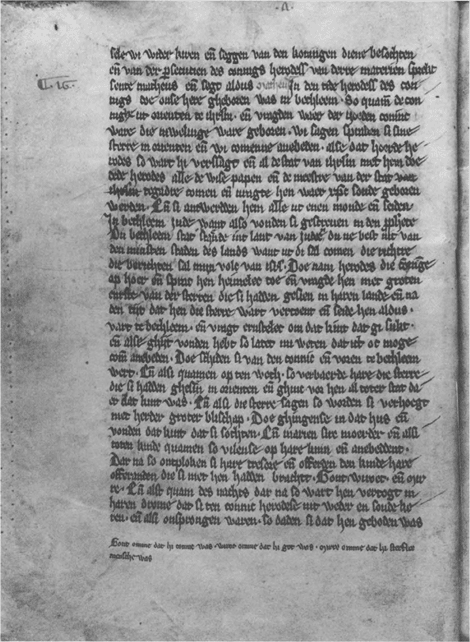 .a.
sele wi weder keren en̄ seggen van den koningen diene besochten
en̄ van der ꝑsecutien des conings herodess van derre materien sprekt
sente matheus en̄ segt aldus In den tide herodess des con
¶. 16.
ings doe onse here ghboren was in bethleem. So quam de con
ut orienten te ihrlm. en̄ vragden waer der yoeden coninc
ware die nuwelinge ware geboren. wi sagen spraken si sine
sterre in orienten en̄ wi comene anebeden. alse dat horde he
rodes so wart hi verssagt en̄ al de stat van ihrlm met hem doe
dede herodes alle de wise papen en̄ de meestre van der stat van
ihrlm togadre comen en̄ vragte hen waer xp̄c soude geboren
werden. En̄ si antwerden hem alle ut enen monde en̄ seiden
In bethleem juda want aldus vonden si gescreuen in den ꝓphete
Du bethleem stat staende int lant van juda du ne best nit van
den minsten staden des lands want ut di sal comen die richtre
die berichten sal mijn volc van isrl. Doe nam herodes die coninge
op hoer en̄ sprac hen heimelec toe en̄ vragde hen met groten
ernste van der sterren die si hadden gesien in haren lande en̄ na
den tijt dat hen die sterre wart vertoent en̄ seide hen aldus.
vart te bethleem. en̄ vragt ernstelec om dat kint dat gi sukt.
en̄ alse ghijt vonden hebt so latet mi weten dat ict oc moge
comen anebeden. Doe scheden si van den coninc en̄ voren te bethleem
wert. En̄ alsi quamen op ten wech. so verbaerde hare die sterre
die si hadden ghesien in orienten en̄ ghinc vor hen al toter stat da
er dat kint was. En̄ alsi die sterre sagen so worden si verhoegt
met herder groter blischap. Doe ghingense in dat hus en̄
vonden dat kint dat si sochten. En̄ marien sire moeder en̄ alsi
toten kinde quamen so vilense op hare knin en̄ anebeddent.
Dat na so ontploken si hare tresore en̄ offerden den kinde hare
offeranden die si met hen hadden bracht. Gout. wiroec. en̄ mir
re. En̄ alst quam des nachts dar na so wart hen vertogt in
haren drome dat si ten coninc herodese nit weder en soude ke
ren. en̄ alsi onsprongen waren. so daden si dat hen geboden was
Gout omme dat hi coninc was. wiroc omme dat hi got was. mirre omme dat hi sterflic
mensche was